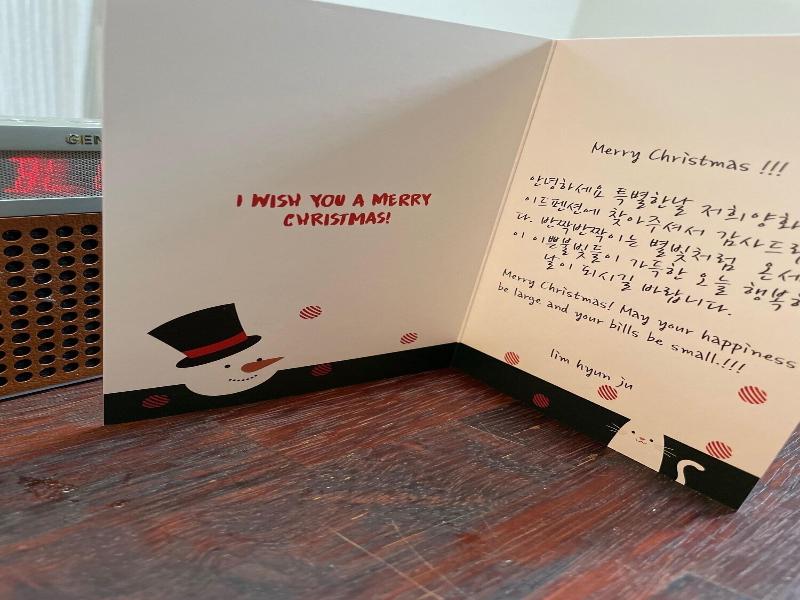 GEN
I WISH YOU A MERRY
CHRISTMAS!
Merry Christmas !!!
안녕하세요 특별한날 저희양화
이드펜션에 찾아주셔서 감사드립
다. 반짝반짝이는 별빛처럼 온세
이 이쁜불빛들이 가득한 오늘 행복하
날이 되시길 바랍니다.
Merry Christmas! May your happiness
be large and your bills be small.!!!
lim hyun ju